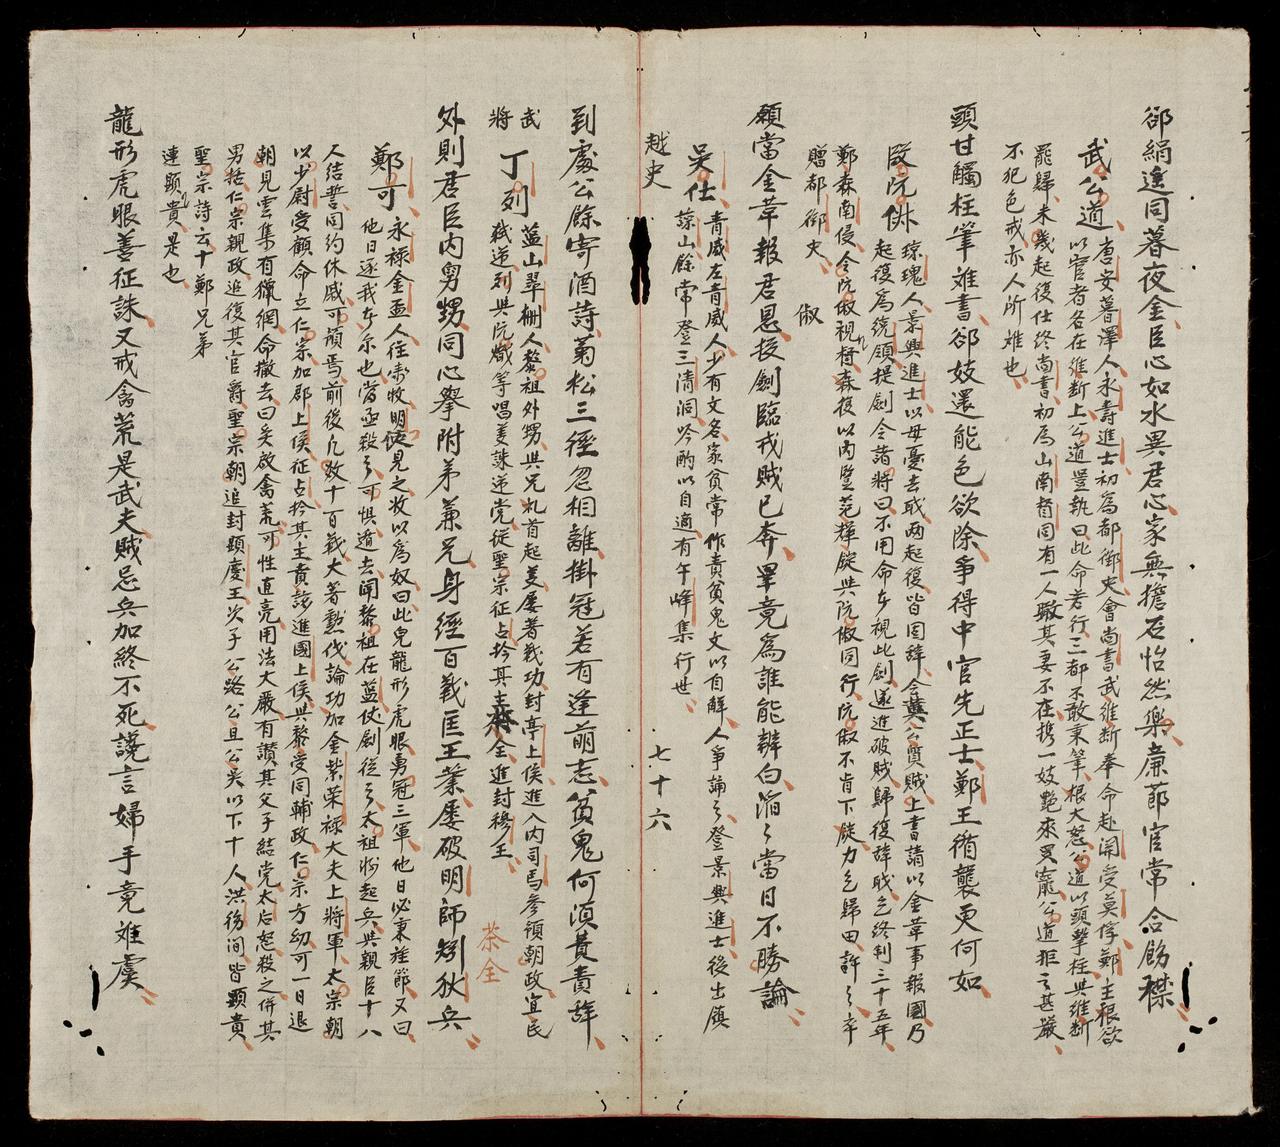 郤絹進同暮夜金臣心如水異君心家無擔石怡然樂廉節官常合飭襟
武公道唐安暮澤人永壽進士初為都御史會尚書武維斷奉命赴開受莫俘鄭主根欲
以宦者各在維斷上公道置執曰此命若行三都不敢秉筆根大怒公道以頭擊柱與維斷
罷歸未幾起復仕終尚書初為山南督同有一人瞰其妻不在携一妓艷來買寵公道拒之甚嚴
不犯色戒亦人所难也
頭甘觸柱筆难書郤妓還能色欲除爭得中官先正士鄭王循襲更何如
阮俶琼瑰人景興進士以母憂去職两起復皆固辞公質賊上書請以金革事報國乃
起復為統領提劍令諸將曰不用命者視此劍遂進破賊歸復辞職乞終制三十五年
鄭森南侵令阮俶視師森復以內監范輝錠與阮俶同行阮俶不肯下錠力乞歸田許之卒
贈都御史
俶
願當金革報君恩按劍臨戎賊已奔畢竟為誰能辨白滔〻當日不勝論
吳仕青威左青威人少有文名家貧常作責貧鬼文以自解人爭誦之登景興進士後出鎮
諒山餘常登三清洞吟酌以自適有午峰集行世
越史
七十六
到處公餘寄酒詩菊松三徑忽相離掛冠若有逢前志貧鬼何須費責辞
武
將
丁列藍山翠柵人黎祖外甥與兄礼首起義屡著战功封亭上侯進入內司馬參預朝政宜民
弒逆列與阮熾等唱義誅逆党從聖宗征占擒其主茶全進封穆王
茶全
外則君臣內舅甥同心攀附弟兼兄身經百战匡王業屡破明師刎狄兵
鄭可永禄金盃人往牧明使見之收以為奴曰此兒龍形虎眼勇冠三軍他日必秉旌節又曰
他日逐我者尔也當亟殺之可惧遁去聞黎祖在藍仗劍從之太祖將起兵與親臣十八
人结誓同約休戚可預焉前後凡数十百战大著勲伐論功加金紫荣禄大夫上將軍太宗朝
以少尉受顧命立仁宗加郡上侯征占擒其主賁該進國上侯與黎受同輔政仁宗方幼可一日退
朝見雲集有獵網命撤去曰奚啟禽荒可性直亮用法大嚴有讚其父子結党太后怒殺之併其
男括仁宗親政追復其官爵聖宗朝追封顕慶王次子公路公旦公吳以下十人洪徳间皆顕貴
聖宗詩云十鄭兄弟
連顕貴是也
龍形虎眼善征誅又戒禽荒是武夫賊忌兵加終不死讒言婦手竟难虞